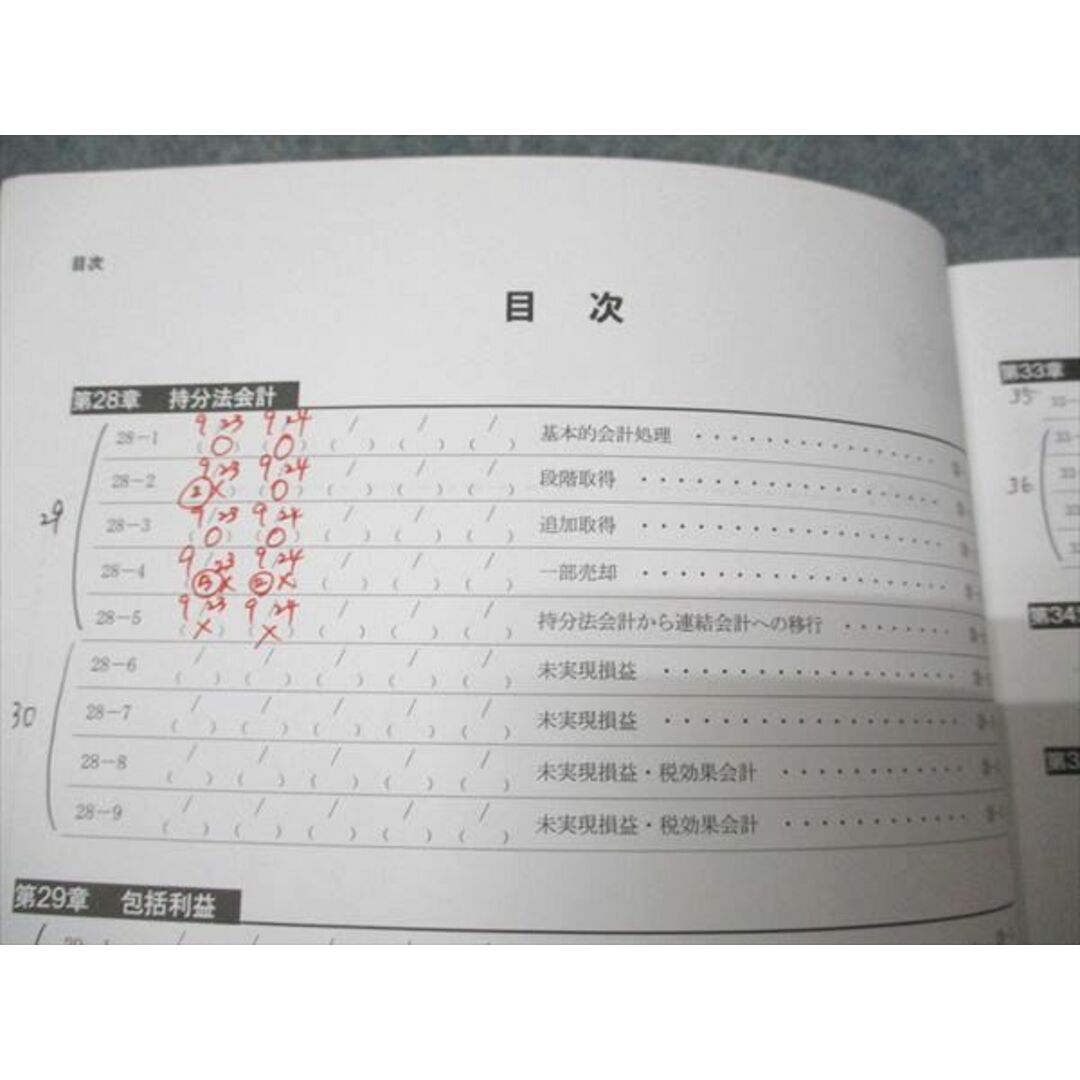 目次
目 次
第28章 持分法会計
9/23 9/24 / / /
28-1 (○) (○) ( ) ( ) ( ) 基本的会計処理 ・・・・・・・・・・・・・・・・
9/23 9/24 / / /
28-2 (②×) (○) ( ) ( ) ( ) 段階取得 ・・・・・・・・・・・・・・・・・・
29
9/23 9/24 / / /
28-3 (○) (○) ( ) ( ) ( ) 追加取得 ・・・・・・・・・・・・・・・・・・
9/23 9/24 / / /
28-4 × × ( ) ( ) ( ) 一部売却 ・・・・・・・・・・・・・・・・・・
9/23 9/24 / / /
28-5 (×) (×) ( ) ( ) ( ) 持分法会計から連結会計への移行 ・・・・・・・・
/ / / / /
28-6 ( ) ( ) ( ) ( ) ( ) 未実現損益 ・・・・・・・・・・・・・・・・・
30
/ / / / /
28-7 ( ) ( ) ( ) ( ) ( ) 未実現損益 ・・・・・・・・・・・・・・・・・
/ / / / /
28-8 ( ) ( ) ( ) ( ) ( ) 未実現損益・税効果会計 ・・・・・・・・・・・
/ / / / /
28-9 ( ) ( ) ( ) ( ) ( ) 未実現損益・税効果会計 ・・・・・・・・・・・
第29章 包括利益
第33章
35
36
第34